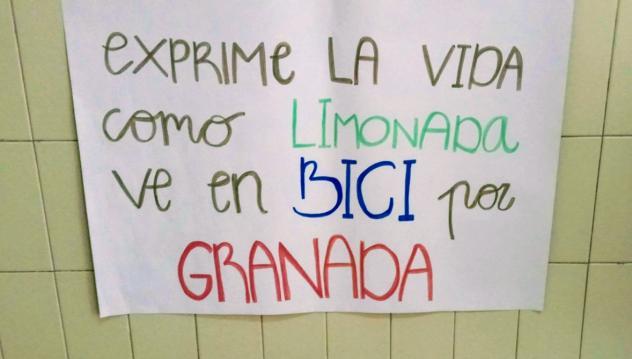 EXPRIME LA VIDA
como LIMONADA
ve en BICI por
GRANADA